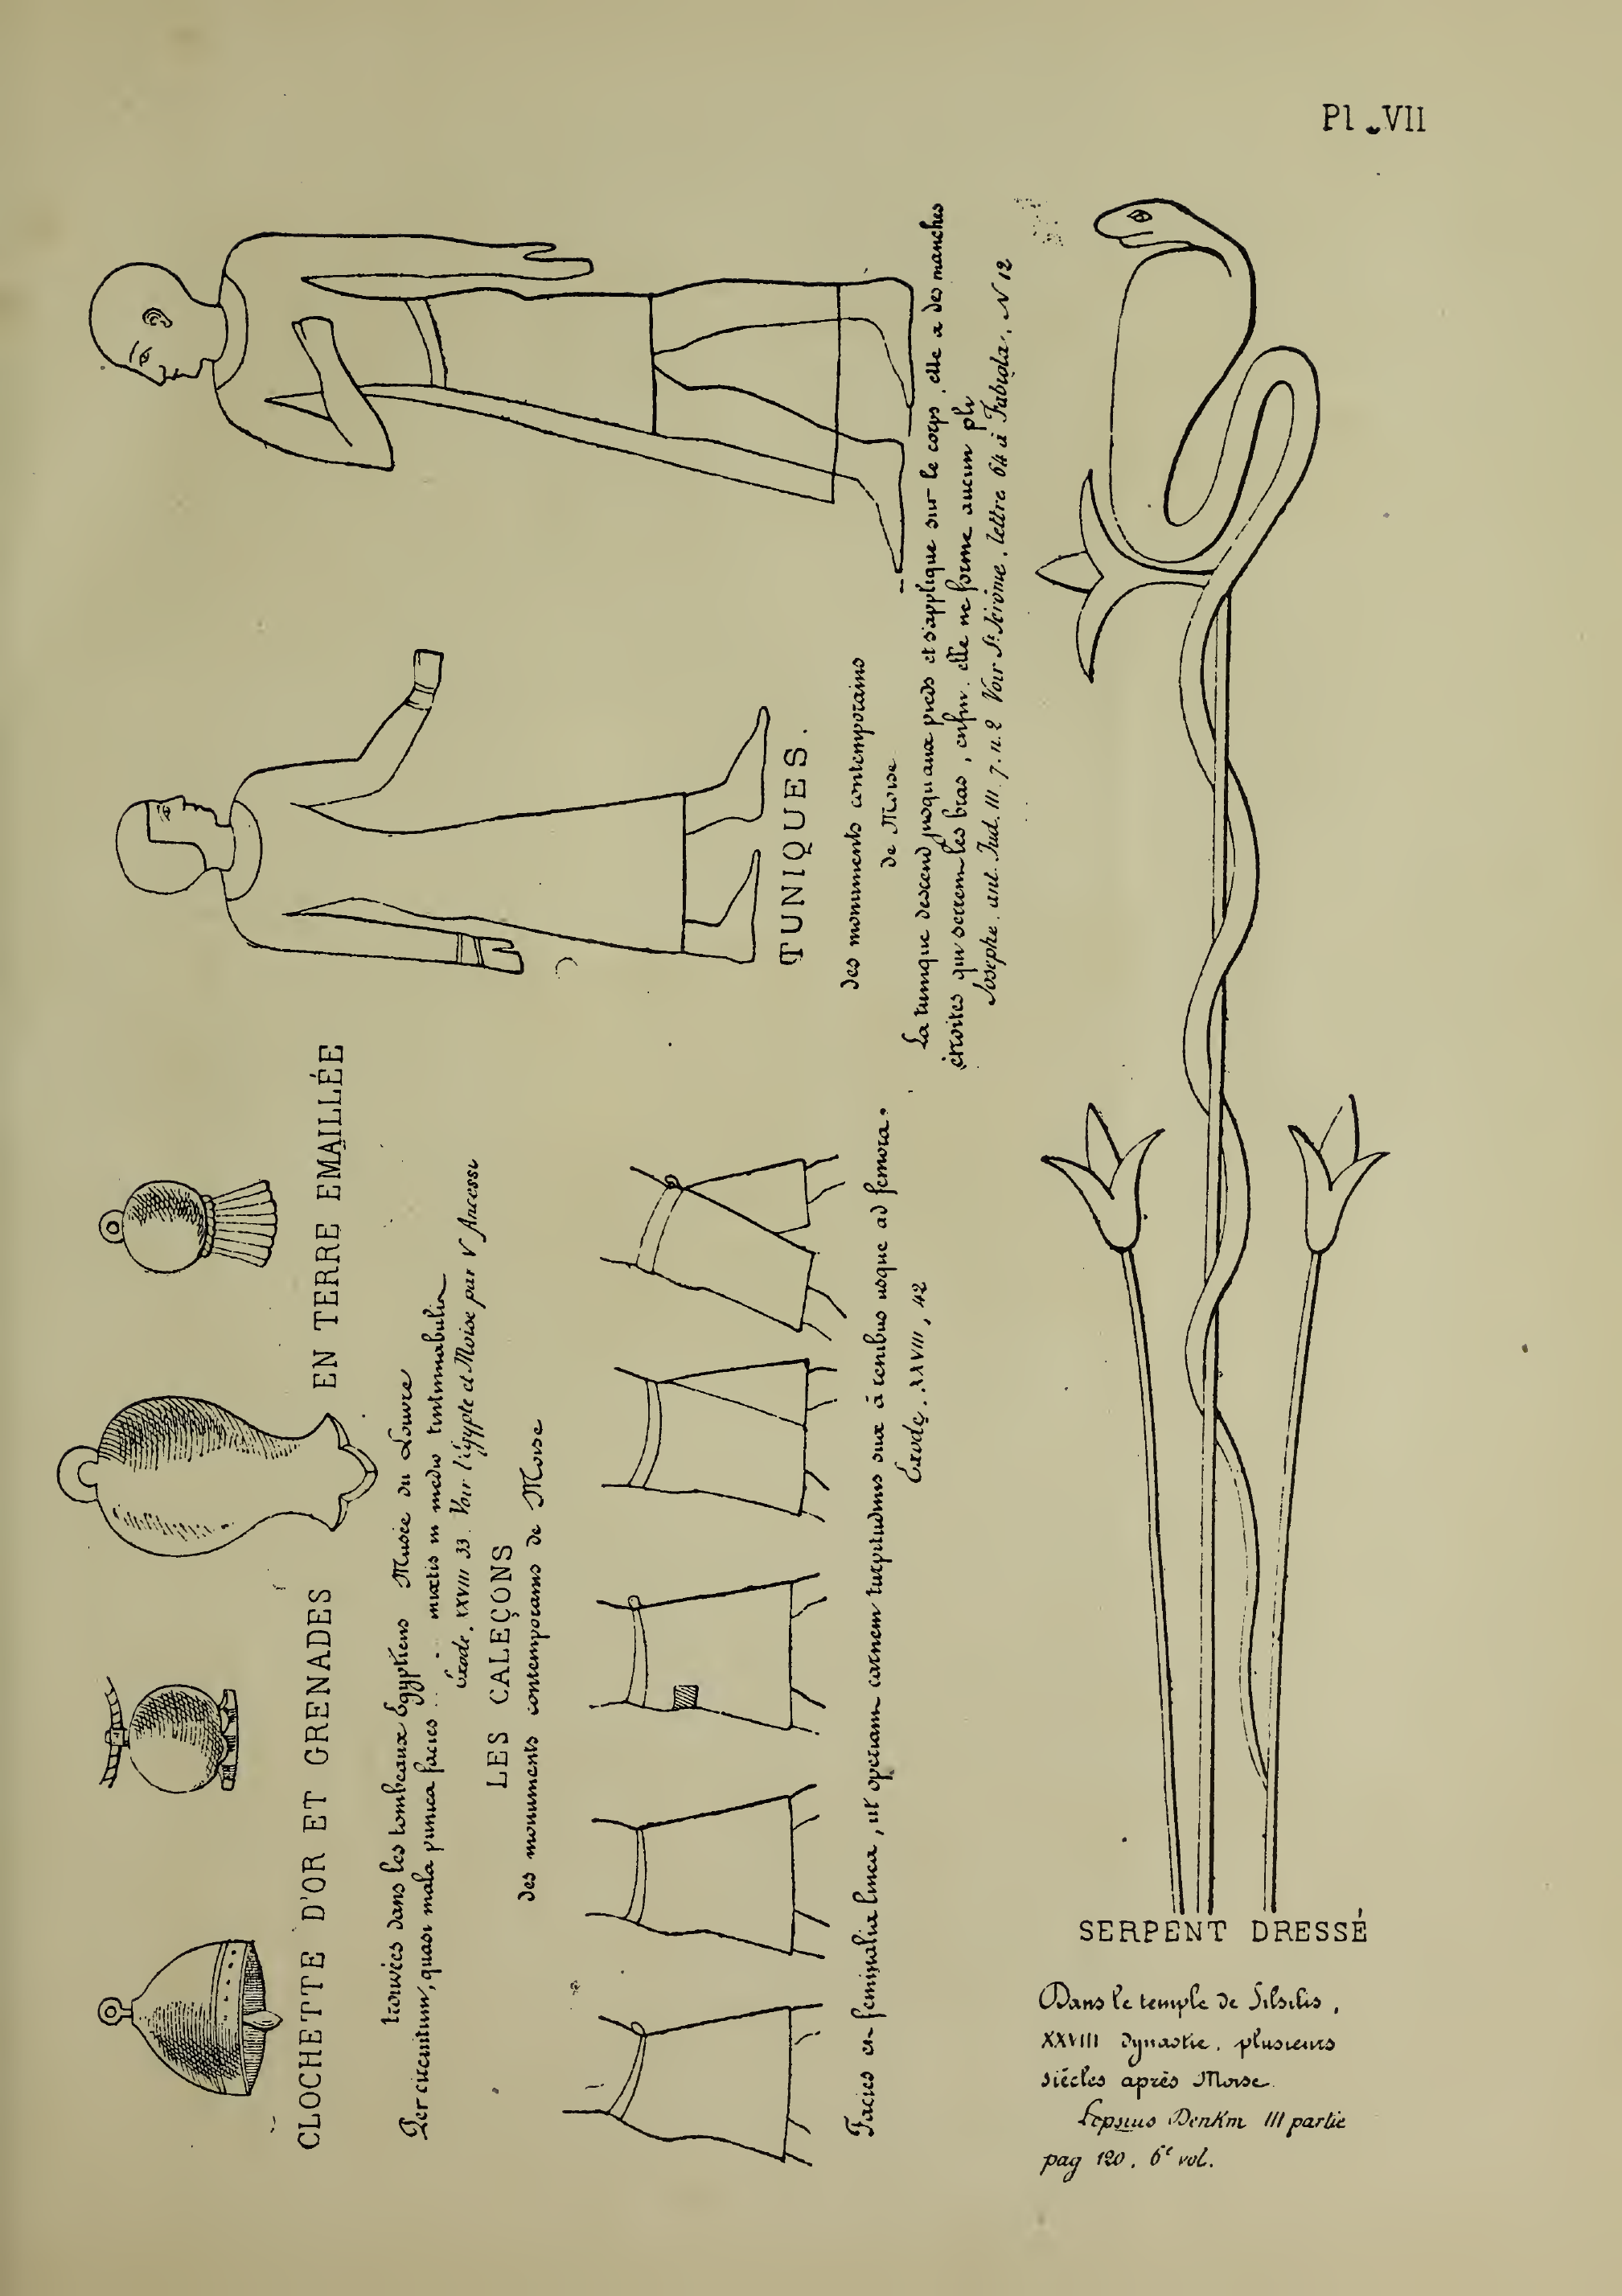 Pl. VII
CLOCHETTE D'OR ET GRENADES EN TERRE EMAILLÉE
trouvées dans les tombeaux Égyptiens Musée du Louvre
Per circuitum, quasi mala punica facies ... mixtis in medio tintinnabulis
Exode. XXVIII 33. Voir l'égypte et Moïse par V Ancessi
LES CALEÇONS
des monuments contemporains de Moïse
Facies et feminalia linea, ut operiant carnem turpitudinis suæ à renibus usque ad femora.
Exode. XXVIII, 42
TUNIQUES.
des monuments contemporains
de Moïse
La tunique descend jusqu'aux pieds et s'applique sur le corps, elle a des manches
étroites qui serrent les bras, enfin. elle ne forme aucun pli
Josèphe. ant. Jud. III. 7. n. 2 Voir St Jérôme. lettre 64 à Fabiola. N 12
SERPENT DRESSÉ
Dans le temple de Silsilis,
XXVIII dynastie. plusieurs
siècles après Moïse.
Lepsius Denkm III partie
pag 120. 6e vol.